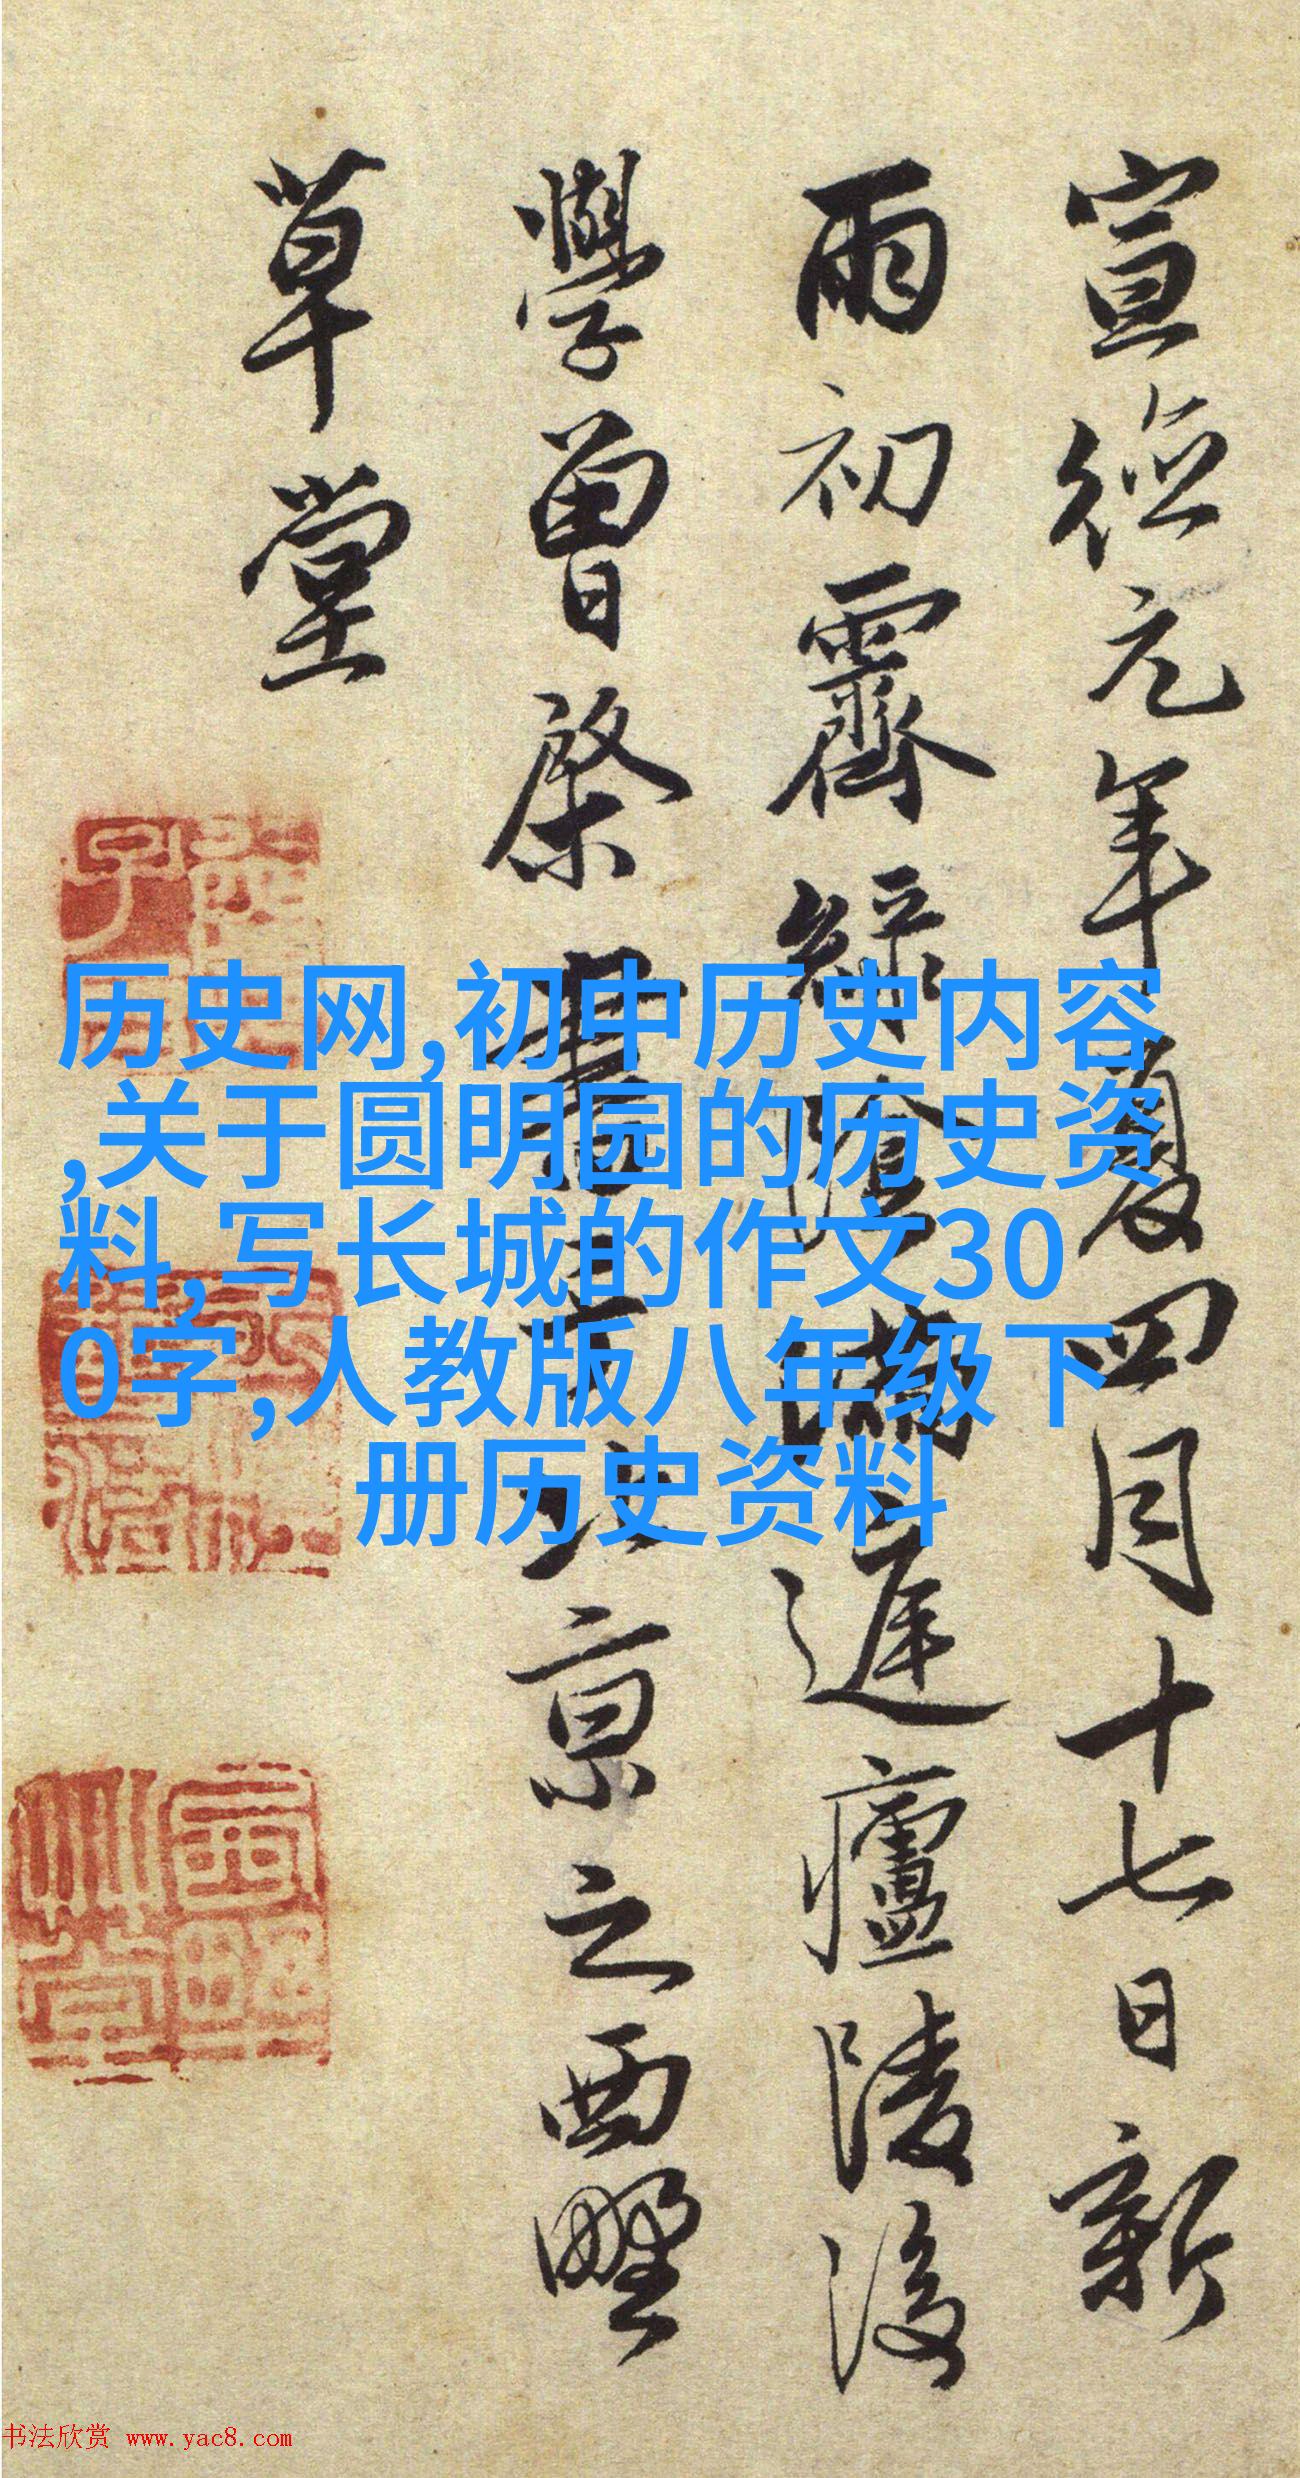 宣德元年夏四月十七日新
雨初霽綠陰滿廬陵後
學曾棨書于北京之西墅
草堂
历史网,初中历史内容
,关于圆明园的历史资
料,写长城的作文30
0字,人教版八年级下
册历史资料
书法欣赏 www.yac8.com